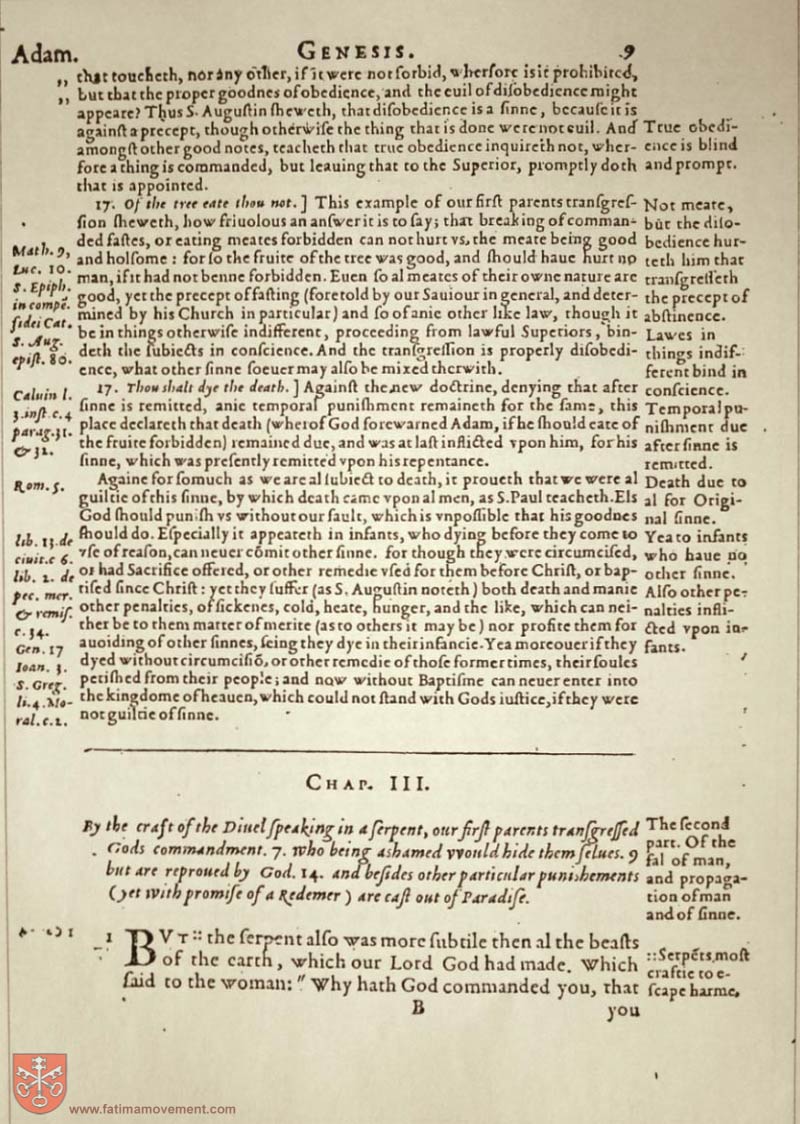 Adam. GENESIS. 9
„ that toucheth, nor any other, if it were not forbid, wherfore is it prohibited,
„ but that the proper goodnes of obedience, and the euil of diſobedience might
appeare? Thus S. Auguſtin ſheweth, that diſobedience is a ſinne, becauſe it is
againſt a precept, though otherwiſe the thing that is done were not euil. And
amongſt other good notes, teacheth that true obedience inquireth not, wher-
fore a thing is commanded, but leauing that to the Superior, promptly doth
that is appointed.
True obedi-
ence is blind
and prompt.
17. Of the tree eate thou not. ] This example of our firſt parents tranſgreſ-
ſion ſheweth, how friuolous an anſwer it is to ſay; that breaking of comman-
ded faſtes, or eating meates forbidden can not hurt vs, the meate being good
and holſome : for ſo the fruite of the tree was good, and ſhould haue hurt no
man, if it had not benne forbidden. Euen ſo al meates of their owne nature are
good, yet the precept of faſting (foretold by our Sauiour in general, and deter-
mined by his Church in particular) and ſo of anie other like law, though it
be in things otherwiſe indifferent, proceeding from lawful Superiors, bin-
deth the ſubiects in conſcience. And the tranſgreſſion is properly diſobedi-
ence, what other ſinne ſoeuer may alſo be mixed therwith.
Math. 9,
Luc. 10.
S. Epiph.
in compẽ.
fidei Cat.
S. Aug.
epiſt. 86.
Not meate,
but the diſo-
bedience hur-
teth him that
tranſgreſſeth
the precept of
abſtinence.
Lawes in
things indif-
ferent bind in
conſcience.
17. Thou ſhalt dye the death. ] Againſt the new doctrine, denying that after
ſinne is remitted, anie temporal puniſhment remaineth for the ſame, this
place declareth that death (wherof God forewarned Adam, if he ſhould eate of
the fruite forbidden) remained due, and was at laſt inflicted vpon him, for his
ſinne, which was preſently remitted vpon his repentance.
Caluin l.
3. inſt. c. 4
parag. 31.
& 32.
Temporal pu-
niſhment due
after ſinne is
remitted.
Againe for ſomuch as we are al ſubiect to death, it proueth that we were al
guiltie of this ſinne, by which death came vpon al men, as S. Paul teacheth. Els
God ſhould puniſh vs without our fault, which is vnpoſſible that his goodnes
ſhould do. Eſpecially it appeareth in infants, who dying before they come to
vſe of reaſon, can neuer cõmit other ſinne. for though they were circumciſed,
or had Sacrifice offered, or other remedie vſed for them before Chriſt, or bap-
tiſed ſince Chriſt : yet they ſuffer (as S. Auguſtin noteth) both death and manie
other penalties, of ſickenes, cold, heate, hunger, and the like, which can nei-
ther be to them matter of merite (as to others it may be) nor profite them for
auoiding of other ſinnes, ſeing they dye in their infancie. Yea moreouer if they
dyed without circumciſiõ, or other remedie of thoſe former times, their ſoules
periſhed from their people; and now without Baptiſme can neuer enter into
the kingdome of heauen, which could not ſtand with Gods iuſtice, if they were
not guiltie of ſinne.
Rom. 5.
lib. 13. de
ciuit. c 6.
lib. 2. de
pec. mer.
& remiſ.
c. 34.
Gen. 17
Ioan. 3.
S. Greg.
li. 4. Mo-
ral. c. 2.
Death due to
al for Origi-
nal ſinne.
Yea to infants
who haue no
other ſinne.
Alſo other pe-
nalties infli-
cted vpon in-
fants.
CHAP. III.
By the craft of the Diuel ſpeaking in a ſerpent, our firſt parents tranſgreſſed
Gods commandment. 7. who being aſhamed vvould hide them ſelues. 9
but are reproued by God. 14. and beſides other particular puniſhements
(yet with promiſe of a Redemer) are caſt out of Paradiſe.
The ſecond
part. Of the
fal of man,
and propaga-
tion of man
and of ſinne.
1 BVT :: the ſerpent alſo was more ſubtile then al the beaſts
of the earth, which our Lord God had made. Which
ſaid to the woman: " Why hath God commanded you, that
::Serpẽts moſt
craftie to e-
ſcape harme.
B you
www.fatimamovement.com